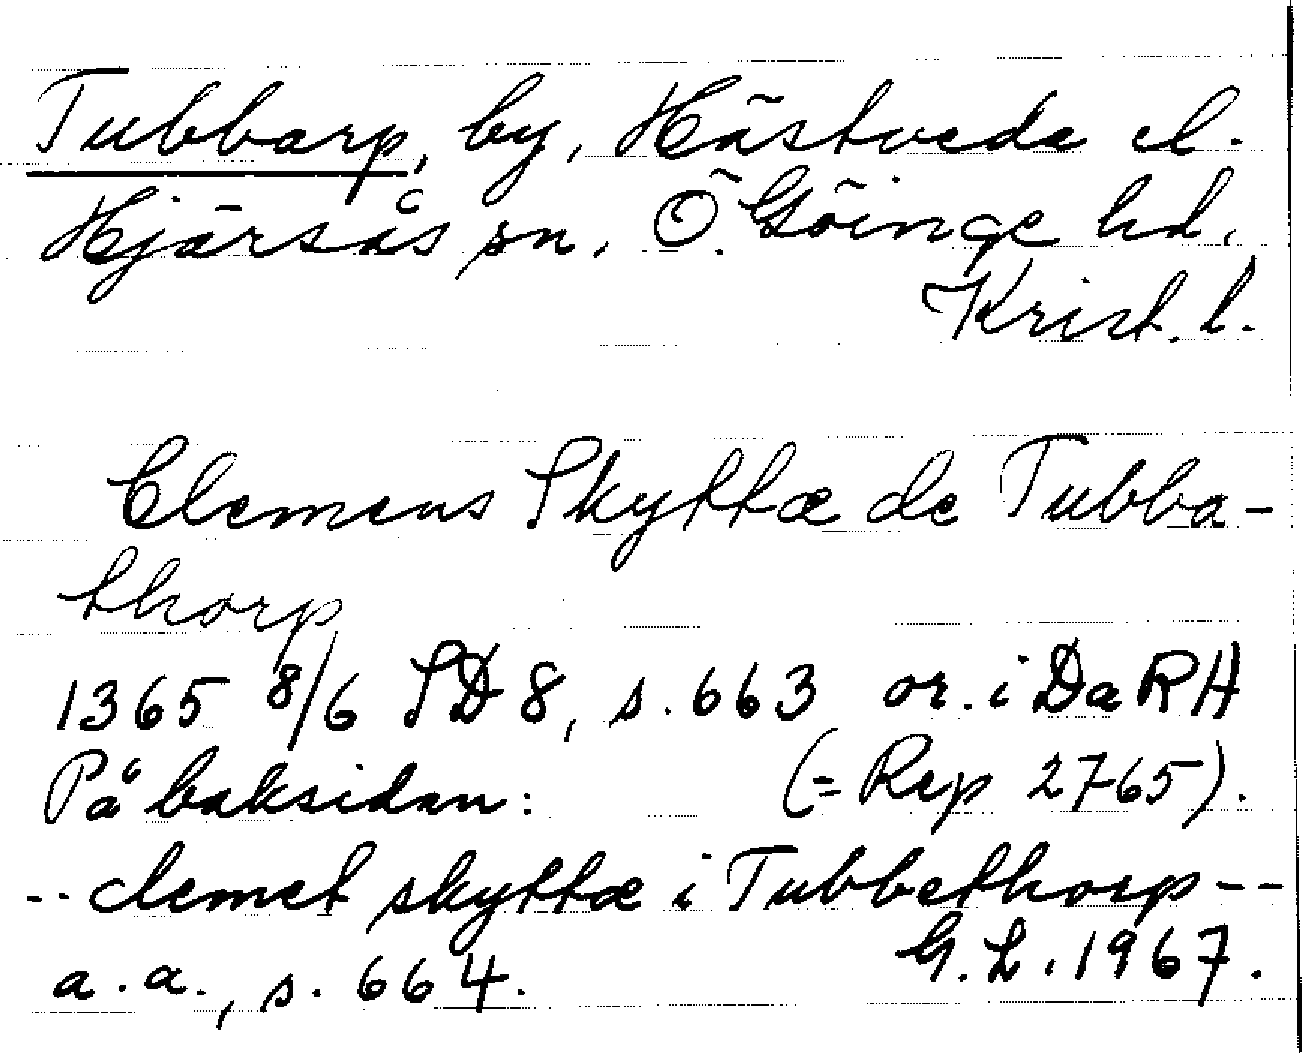 Tubbarp, by, Hästveda el.
Hjärsås sn. Ö. Göinge hd.
Krist. l.
Clemens Skyttæ de Tubba-
thorp
1365 8/6 SD 8, s. 663 or. i DaRA
På baksidan: (= Rep 2765).
-- clemet skyttæ i Tubbethorp --
a. a., s. 664. G. L. 1967.